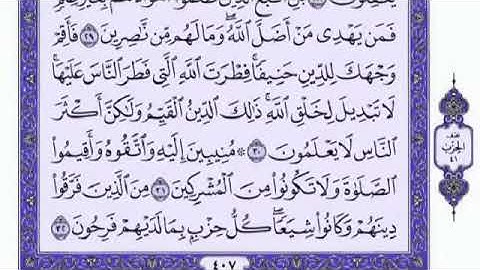 يَعْقِلُونَ ٢٨ بَلِ ٱتَّبَعَ ٱلَّذِينَ ظَلَمُوٓا۟ أَهْوَآءَهُم بِغَيْرِ عِلْمٍ
فَمَن يَهْدِى مَنْ أَضَلَّ ٱللَّهُ ۖ وَمَا لَهُم مِّن نَّٰصِرِينَ ٢٩ فَأَقِمْ
وَجْهَكَ لِلدِّينِ حَنِيفًا ۚ فِطْرَتَ ٱللَّهِ ٱلَّتِى فَطَرَ ٱلنَّاسَ عَلَيْهَا ۚ
لَا تَبْدِيلَ لِخَلْقِ ٱللَّهِ ۚ ذَٰلِكَ ٱلدِّينُ ٱلْقَيِّمُ وَلَٰكِنَّ أَكْثَرَ
ٱلنَّاسِ لَا يَعْلَمُونَ ٣٠ ۞ مُنِيبِينَ إِلَيْهِ وَٱتَّقُوهُ وَأَقِيمُوا۟
ٱلصَّلَوٰةَ وَلَا تَكُونُوا۟ مِنَ ٱلْمُشْرِكِينَ ٣١ مِنَ ٱلَّذِينَ فَرَّقُوا۟
دِينَهُمْ وَكَانُوا۟ شِيَعًا ۖ كُلُّ حِزْبٍۭ بِمَا لَدَيْهِمْ فَرِحُونَ ٣٢
٤٠٧
نصف
الحزب
٤١